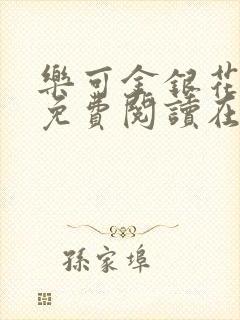 樂可金銀花
免費閱讀在
孫家埠